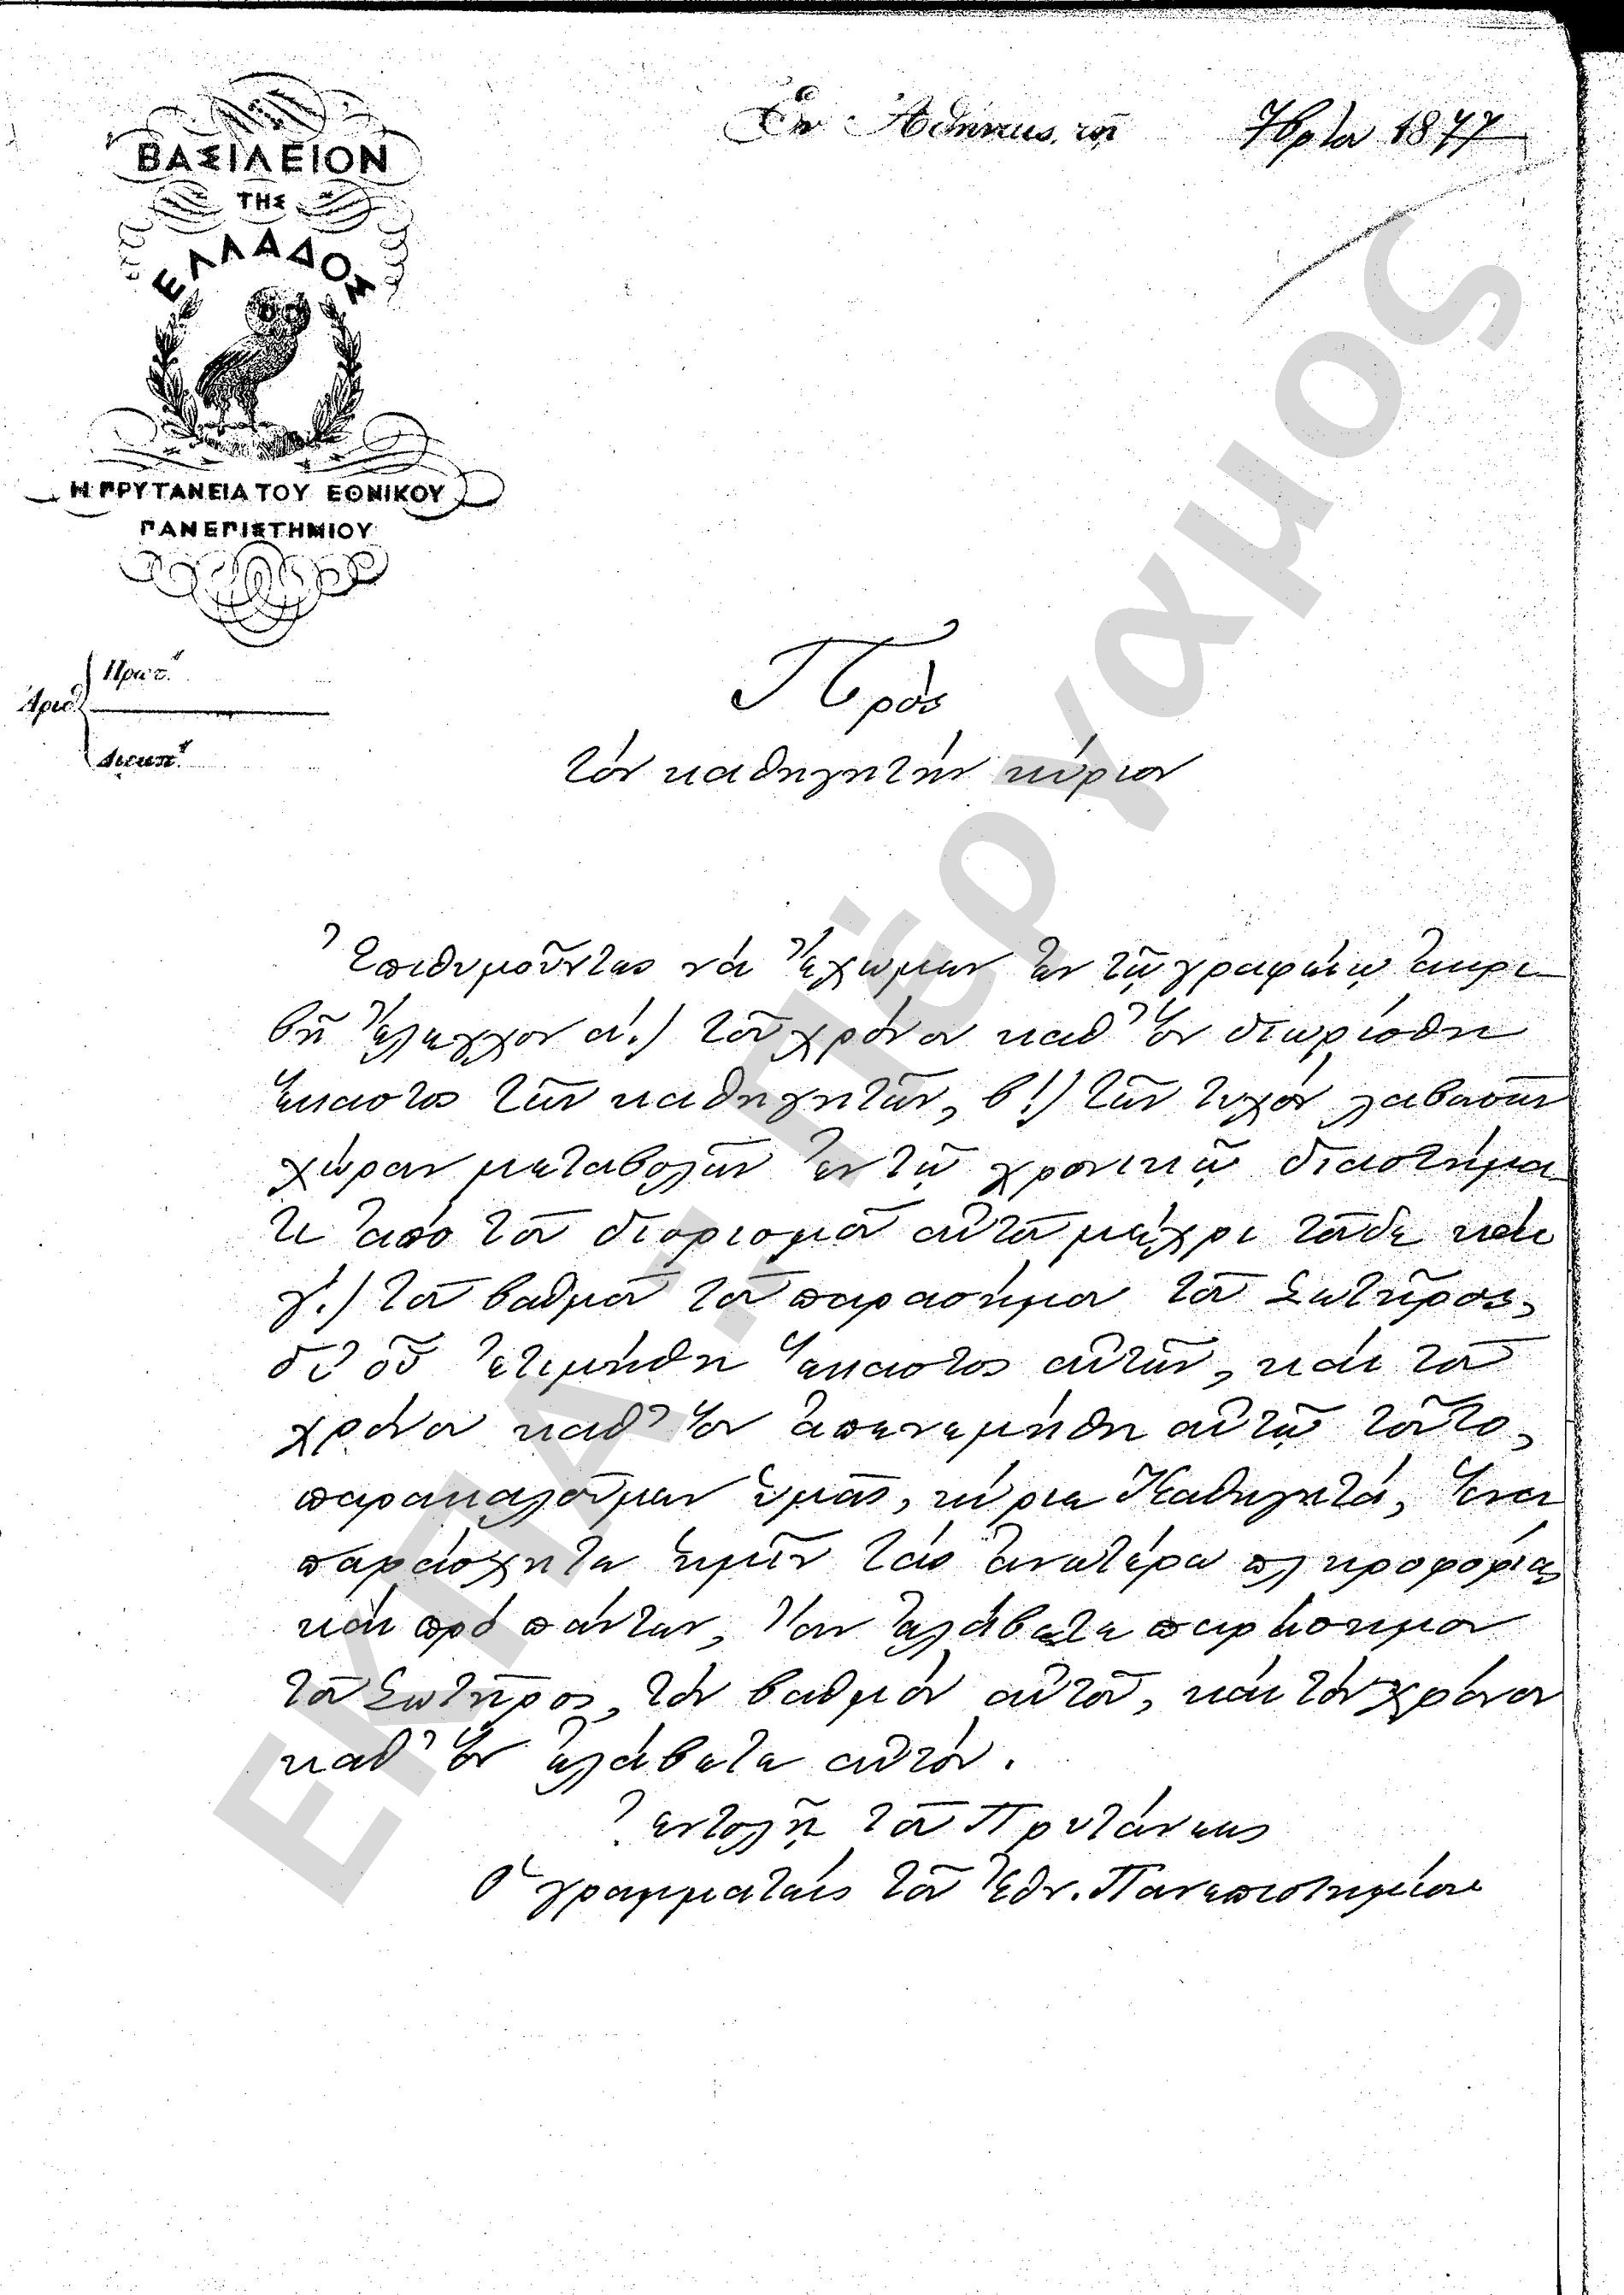 ΒΑΣΙΛΕΙΟΝ
ΤΗΣ
ΕΛΛΑΔΟΣ
Η ΠΡΥΤΑΝΕΙΑ ΤΟΥ ΕΘΝΙΚΟΥ
ΠΑΝΕΠΙΣΤΗΜΙΟΥ
Ἐν Ἀθήναις τῇ 7βρίου 1877
Ἀριθ. Πρωτ.
Διεκπ.
Πρὸς
τὸν καθηγητὴν κύριον
Ἐπιθυμοῦντες νὰ ἔχωμεν ἐν τῷ γραφείῳ ἀκρι-
βῆ ἔλεγχον α΄.) τοῦ χρόνου καθ' ὃν διωρίσθη
ἕκαστος τῶν καθηγητῶν, β΄.) τῶν τυχὸν λαβουσῶν
χώραν μεταβολῶν ἐν τῷ χρονικῷ διαστήμα-
τι ἀπὸ τοῦ διορισμοῦ αὐτοῦ μέχρι τοῦδε καὶ
γ΄.) τοῦ βαθμοῦ τοῦ παρασήμου τοῦ Σωτῆρος,
δι' οὗ ἐτιμήθη ἕκαστος αὐτῶν, καὶ τοῦ
χρόνου καθ' ὃν ἀπενεμήθη αὐτῷ τοῦτο,
παρακαλοῦμεν ὑμᾶς, κύριε Καθηγητά, ἵνα
παράσχητε ἡμῖν τὰς ἀνωτέρω πληροφορίας
καὶ πρὸ πάντων, ἂν ἐλάβετε παράσημον
τοῦ Σωτῆρος, τὸν βαθμὸν αὐτοῦ, καὶ τὸν χρόνον
καθ' ὃν ἐλάβετε αὐτόν.
Ἐντολῇ τοῦ Πρυτάνεως
Ὁ γραμματεὺς τοῦ Ἐθν. Πανεπιστημίου
ΕΚΠΑ - Πέργαμος